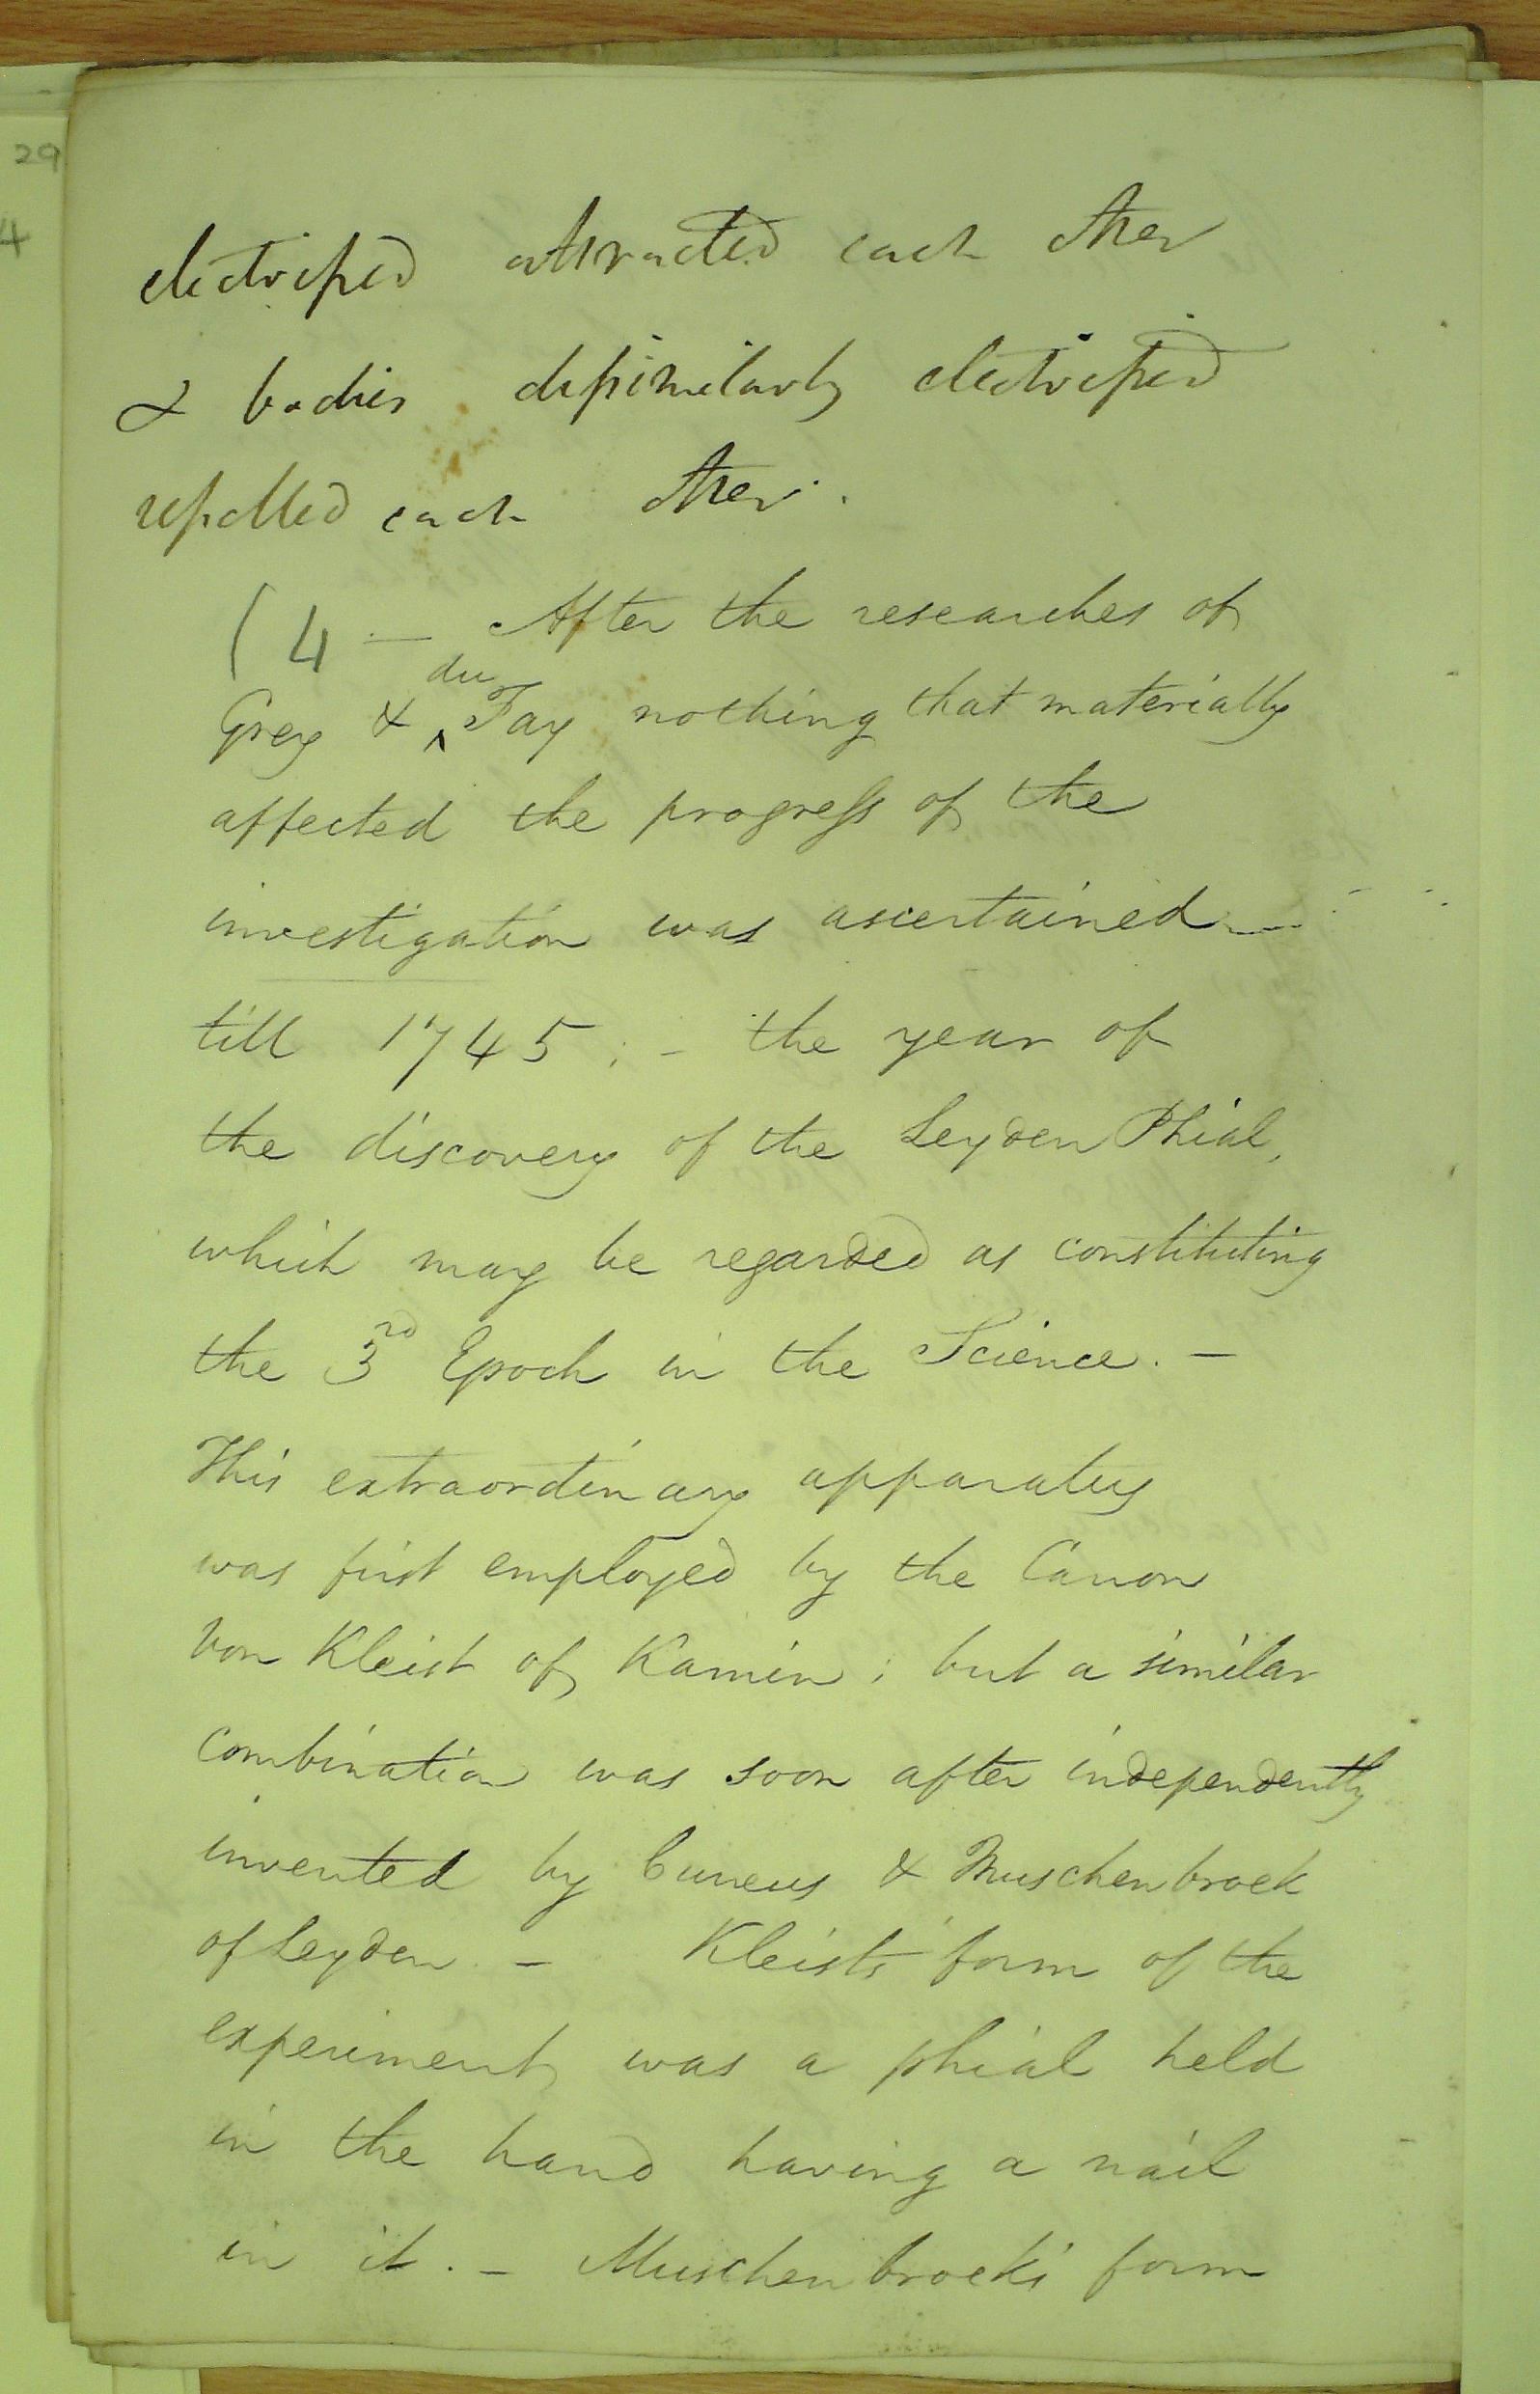 29
4
electrified attracted each other
& bodies dissimilarly electrified
repelled each other.
(4 — After the researches of
Grey & ^du Fay nothing that materially
affected the progress of the
investigation was ascertained —
till 1745; - the year of
the discovery of the Leyden Phial,
which may be regarded as constituting
the 3rd Epoch in the Science. —
This extraordinary apparatus
was first employed by the Canon
von Kleist of Kamin; but a similar
combination was soon after independently
invented by Cuneus & Muschenbroek
of Leyden. — Kleist's form of the
experiment was a phial held
in the hand having a nail
in it. — Muschenbroek's form